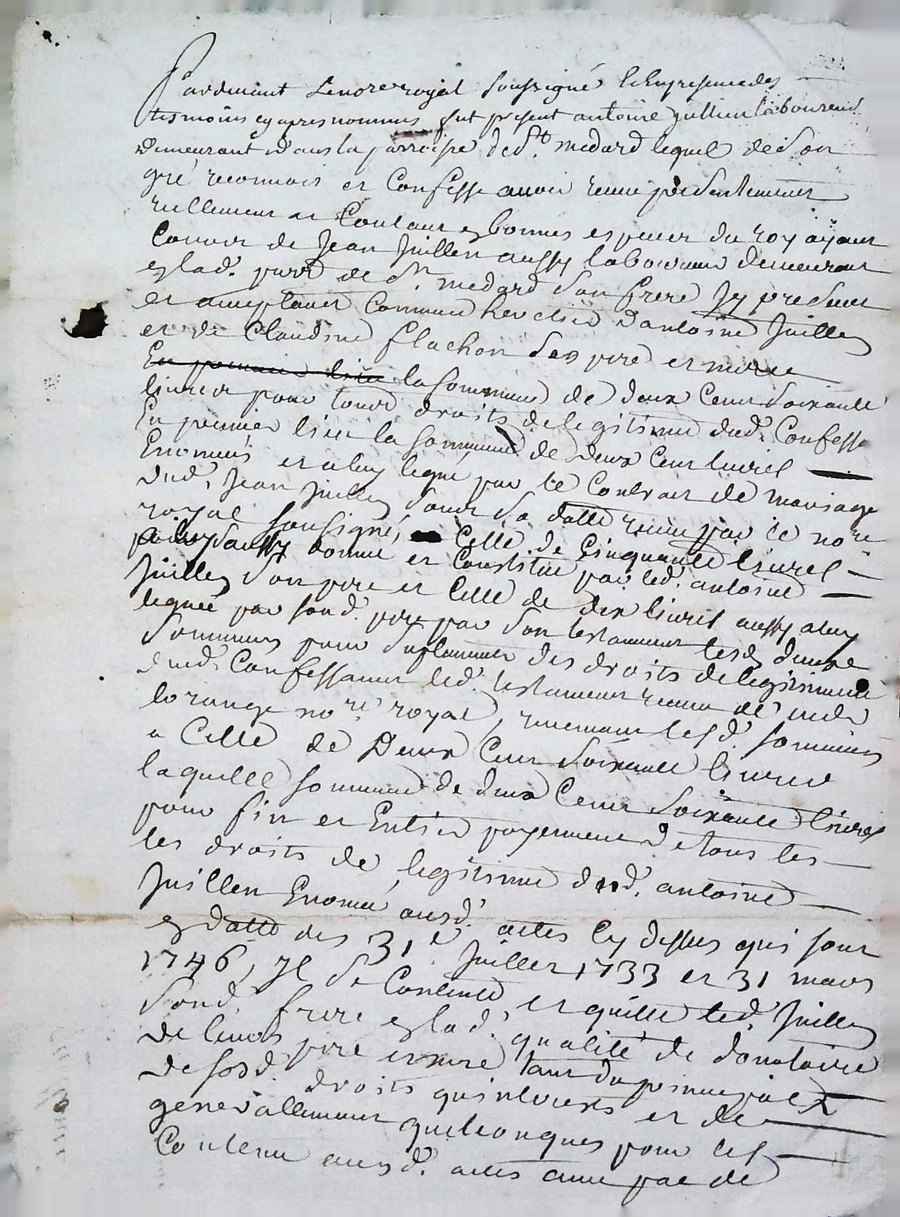 Pardevant Lenore royal soussigné & En presence des
tesmoins cy apres nommés fut present antoine Jullien laboureur
Demeurant dans la parroisse de St. medard lequel de son
gré reconnois et Confesse avoir receu presentement
reellement et Contant en bonnes especes du roy ayant
Cours de Jean Juillen aussy laboureur demeurant
en lad. parr de St medard son frere Icy present
et acceptant comme heretier dantoine Juillen
et de Claudine flachon ses pere et mere
En premier lieu la somme de deux Cent soixante
livres pour tours droits de legitime dud. Confess
En premier lieu la somme de deux Cent livres
Enomés et a luy legué par le Contrat de mariage
dud. Jean Juillen sous sa datte receu par le nore
royal soussigné, Celle de Cinquante livres
a luy aussy donné et Constitué par led. antoine
Juillen son pere et Celle de dix livres aussy a luy
legué par sond. pere par son testament lesd. deux
sommes pour suplement des droits de legitime
dud. Confessant led. testament receu de me
lorange nore royal, revenant lesd. sommes
a Celle de Deux Cent soixante livres
laquelle somme de deux Cent soixante livres
pour fin et Entier payement de tous les
les droits de legitime dud. antoine
Juillen Enomé ausd. actes Cy dessus qui sont
en datte des 31e. Juillet 1733 et 31 mars
1746, Il se Contente et quitte led. Juillen
sond. frere en lad. qualité de donataire
de leurs pere et mere tant du principal
de sesd. droits qu'interets et de
generallement quelconques pour les
Contenu ausd. actes avec pac de